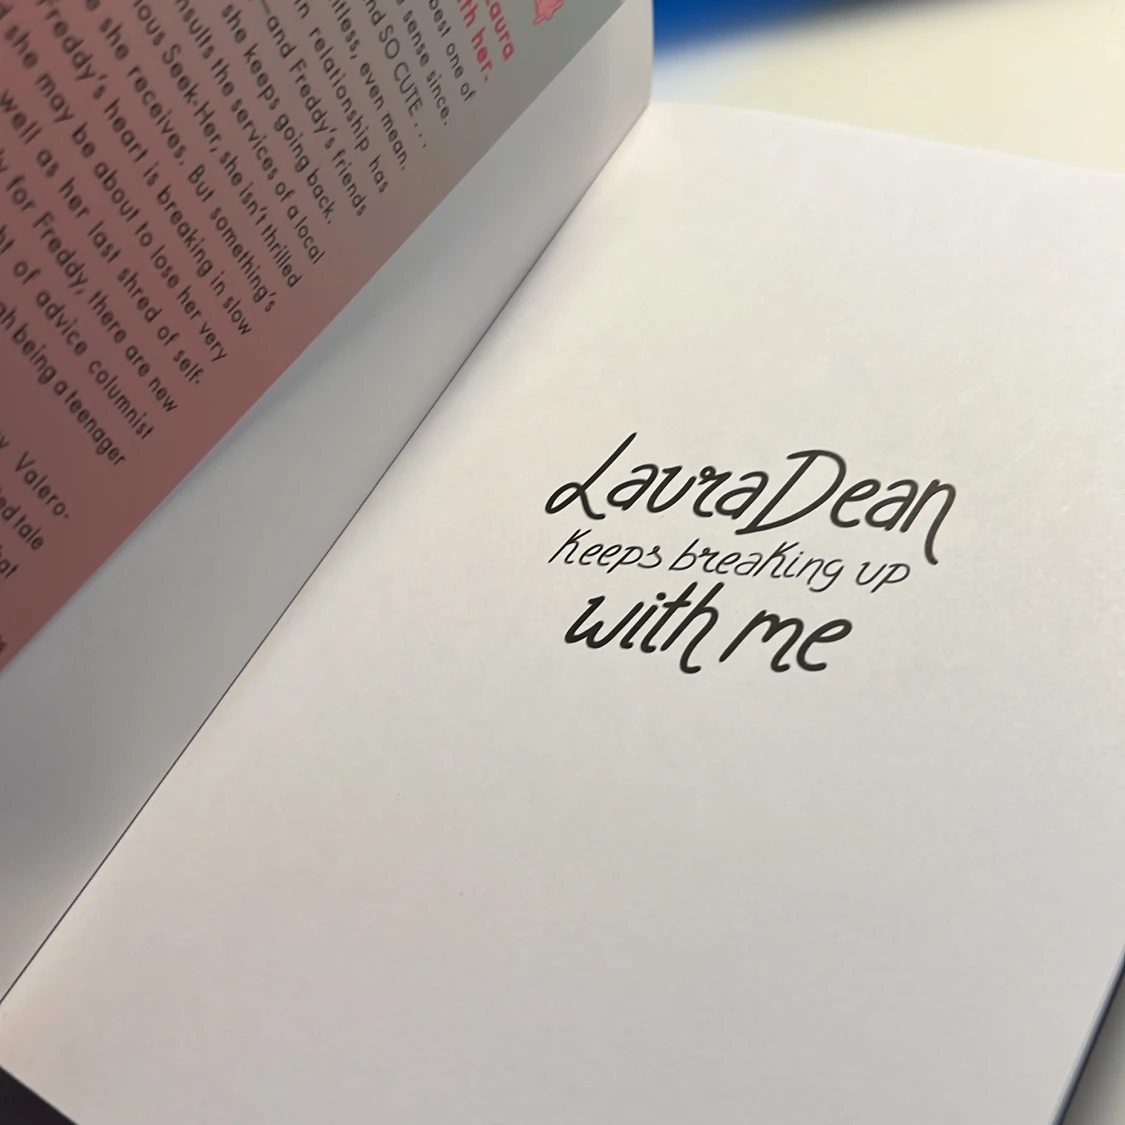 Laura
th her.
best one of
sense since,
nd SO CUTE . . .
tless, even mean.
n relationship has
—and Freddy's friends
she keeps going back.
nsults the services of a local
ious Seek-Her, she isn't thrilled
she receives. But something's
Freddy's heart is breaking in slow
she may be about to lose her very
well as her last shred of self.
for Freddy, there are new
of advice columnist
gh being a teenager
Valero-
ed tale
Laura Dean
keeps breaking up
with me